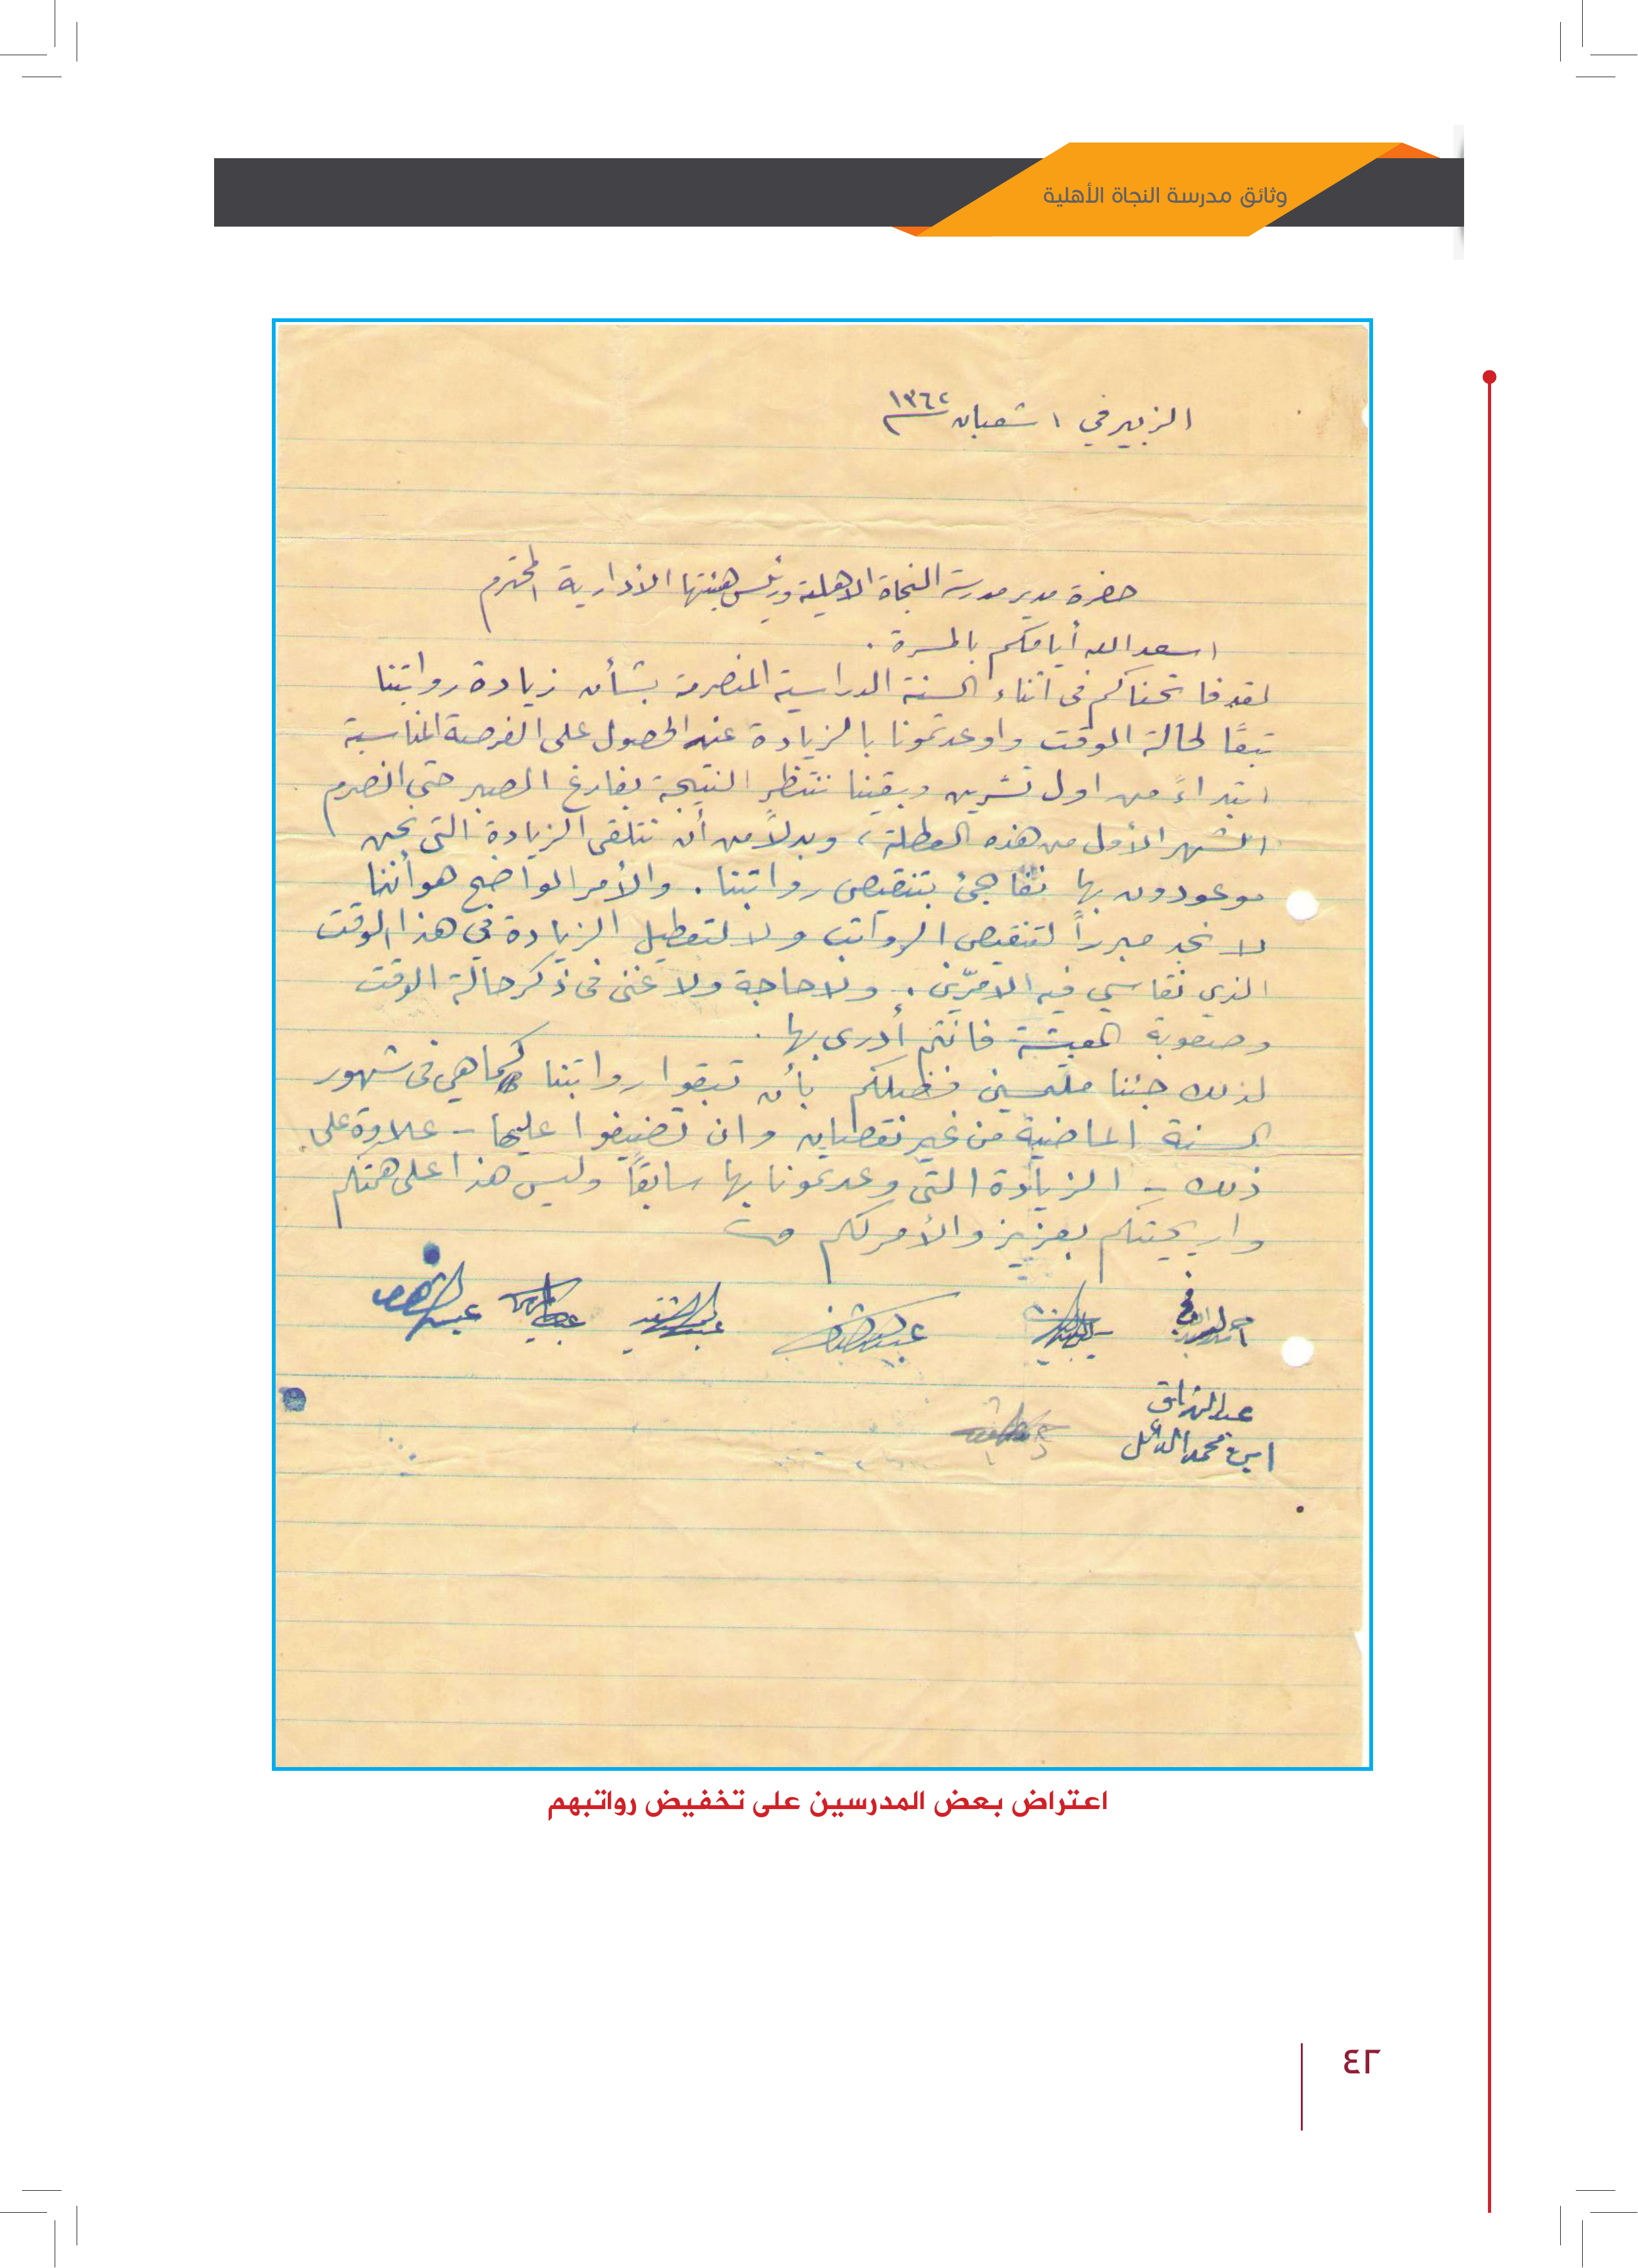 وثائق مدرسة النجاة الأهلية
الزبير في ١ شعبان ١٣٦٢
حضرة مدير مدرسة النجاة الاهلية ورئيس هيئتها الادارية المحترم
اسعد الله أيامكم بالمسرة .
لقد فاتحناكم في اثناء السنة الدراسية المنصرمة بشأن زيادة رواتبنا
تبعًا لحالة الوقت واوعدتمونا بالزيادة عند الحصول على الفرصة المناسبة
ابتداءً من اول تشرين وبقينا ننتظر النتيجة بفارغ الصبر حتى انصرم
الشهر الأول من هذه العطلة، وبدلاً من أن نتلقى الزيادة التي نحن
موعودون بها نفاجئ بتنقيص رواتبنا . والأمر الواضح هو أننا
لا نجد مبرراً لتنقيص الرواتب ولا لتعطيل الزيادة في هذا الوقت
الذي نقاسي فيه الامرّين . ولا حاجة ولا غنى في ذكر حالة الوقت
وصعوبة المعيشة فانتم أدرى بها .
لذلك جئنا ملتمسين فضلكم بأن تبقوا رواتبنا كما هي في شهور
السنة الماضية من غير نقصان وان تضيفوا عليها - علاوة على
ذلك - الزيادة التي وعدتمونا بها سابقاً وليس هذا على همتكم
واريحيتكم بعزيز والأمر لكم
عبد الرزاق
ابن محمد الدايل
اعتراض بعض المدرسين على تخفيض رواتبهم
٤٢